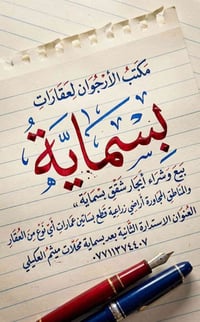 مكتب الأرجوان لعقارات
بسماية
بيع وشراء أيجار شقق بسماية
والمناطق المجاورة أراضي زراعية قطع بساتين عمارات أي نوع من العقار
العنوان الاستدارة الثانية بعد بسماية محلات ميثم العكيلي
٠٧٧١١٣٧٤٤٠٧